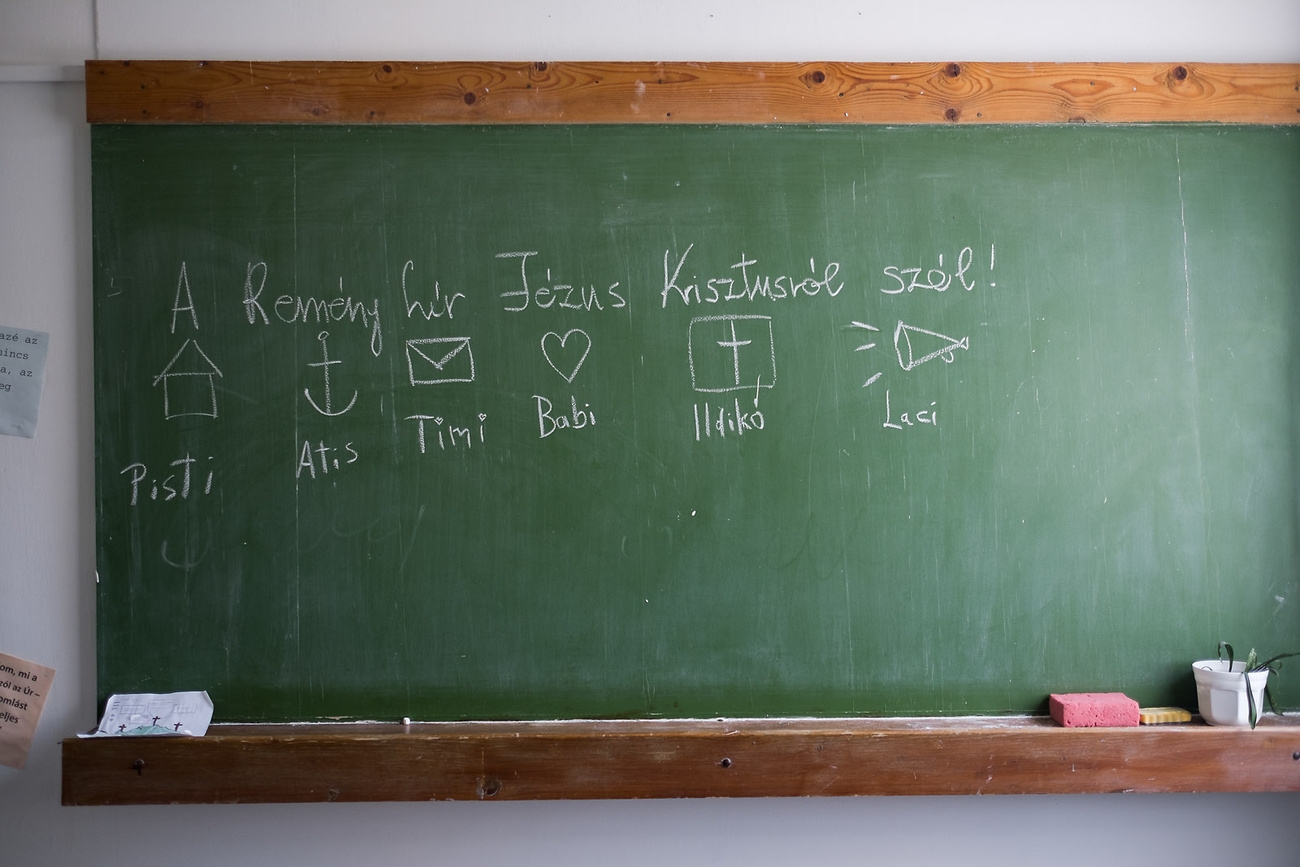 A Remény hír Jézus Krisztusról szól!
Pisti Atis Timi Babi Ildikó Laci
azé az
nincs
a, az
eg
om, mi a
zól az Úr –
omlást
eljes